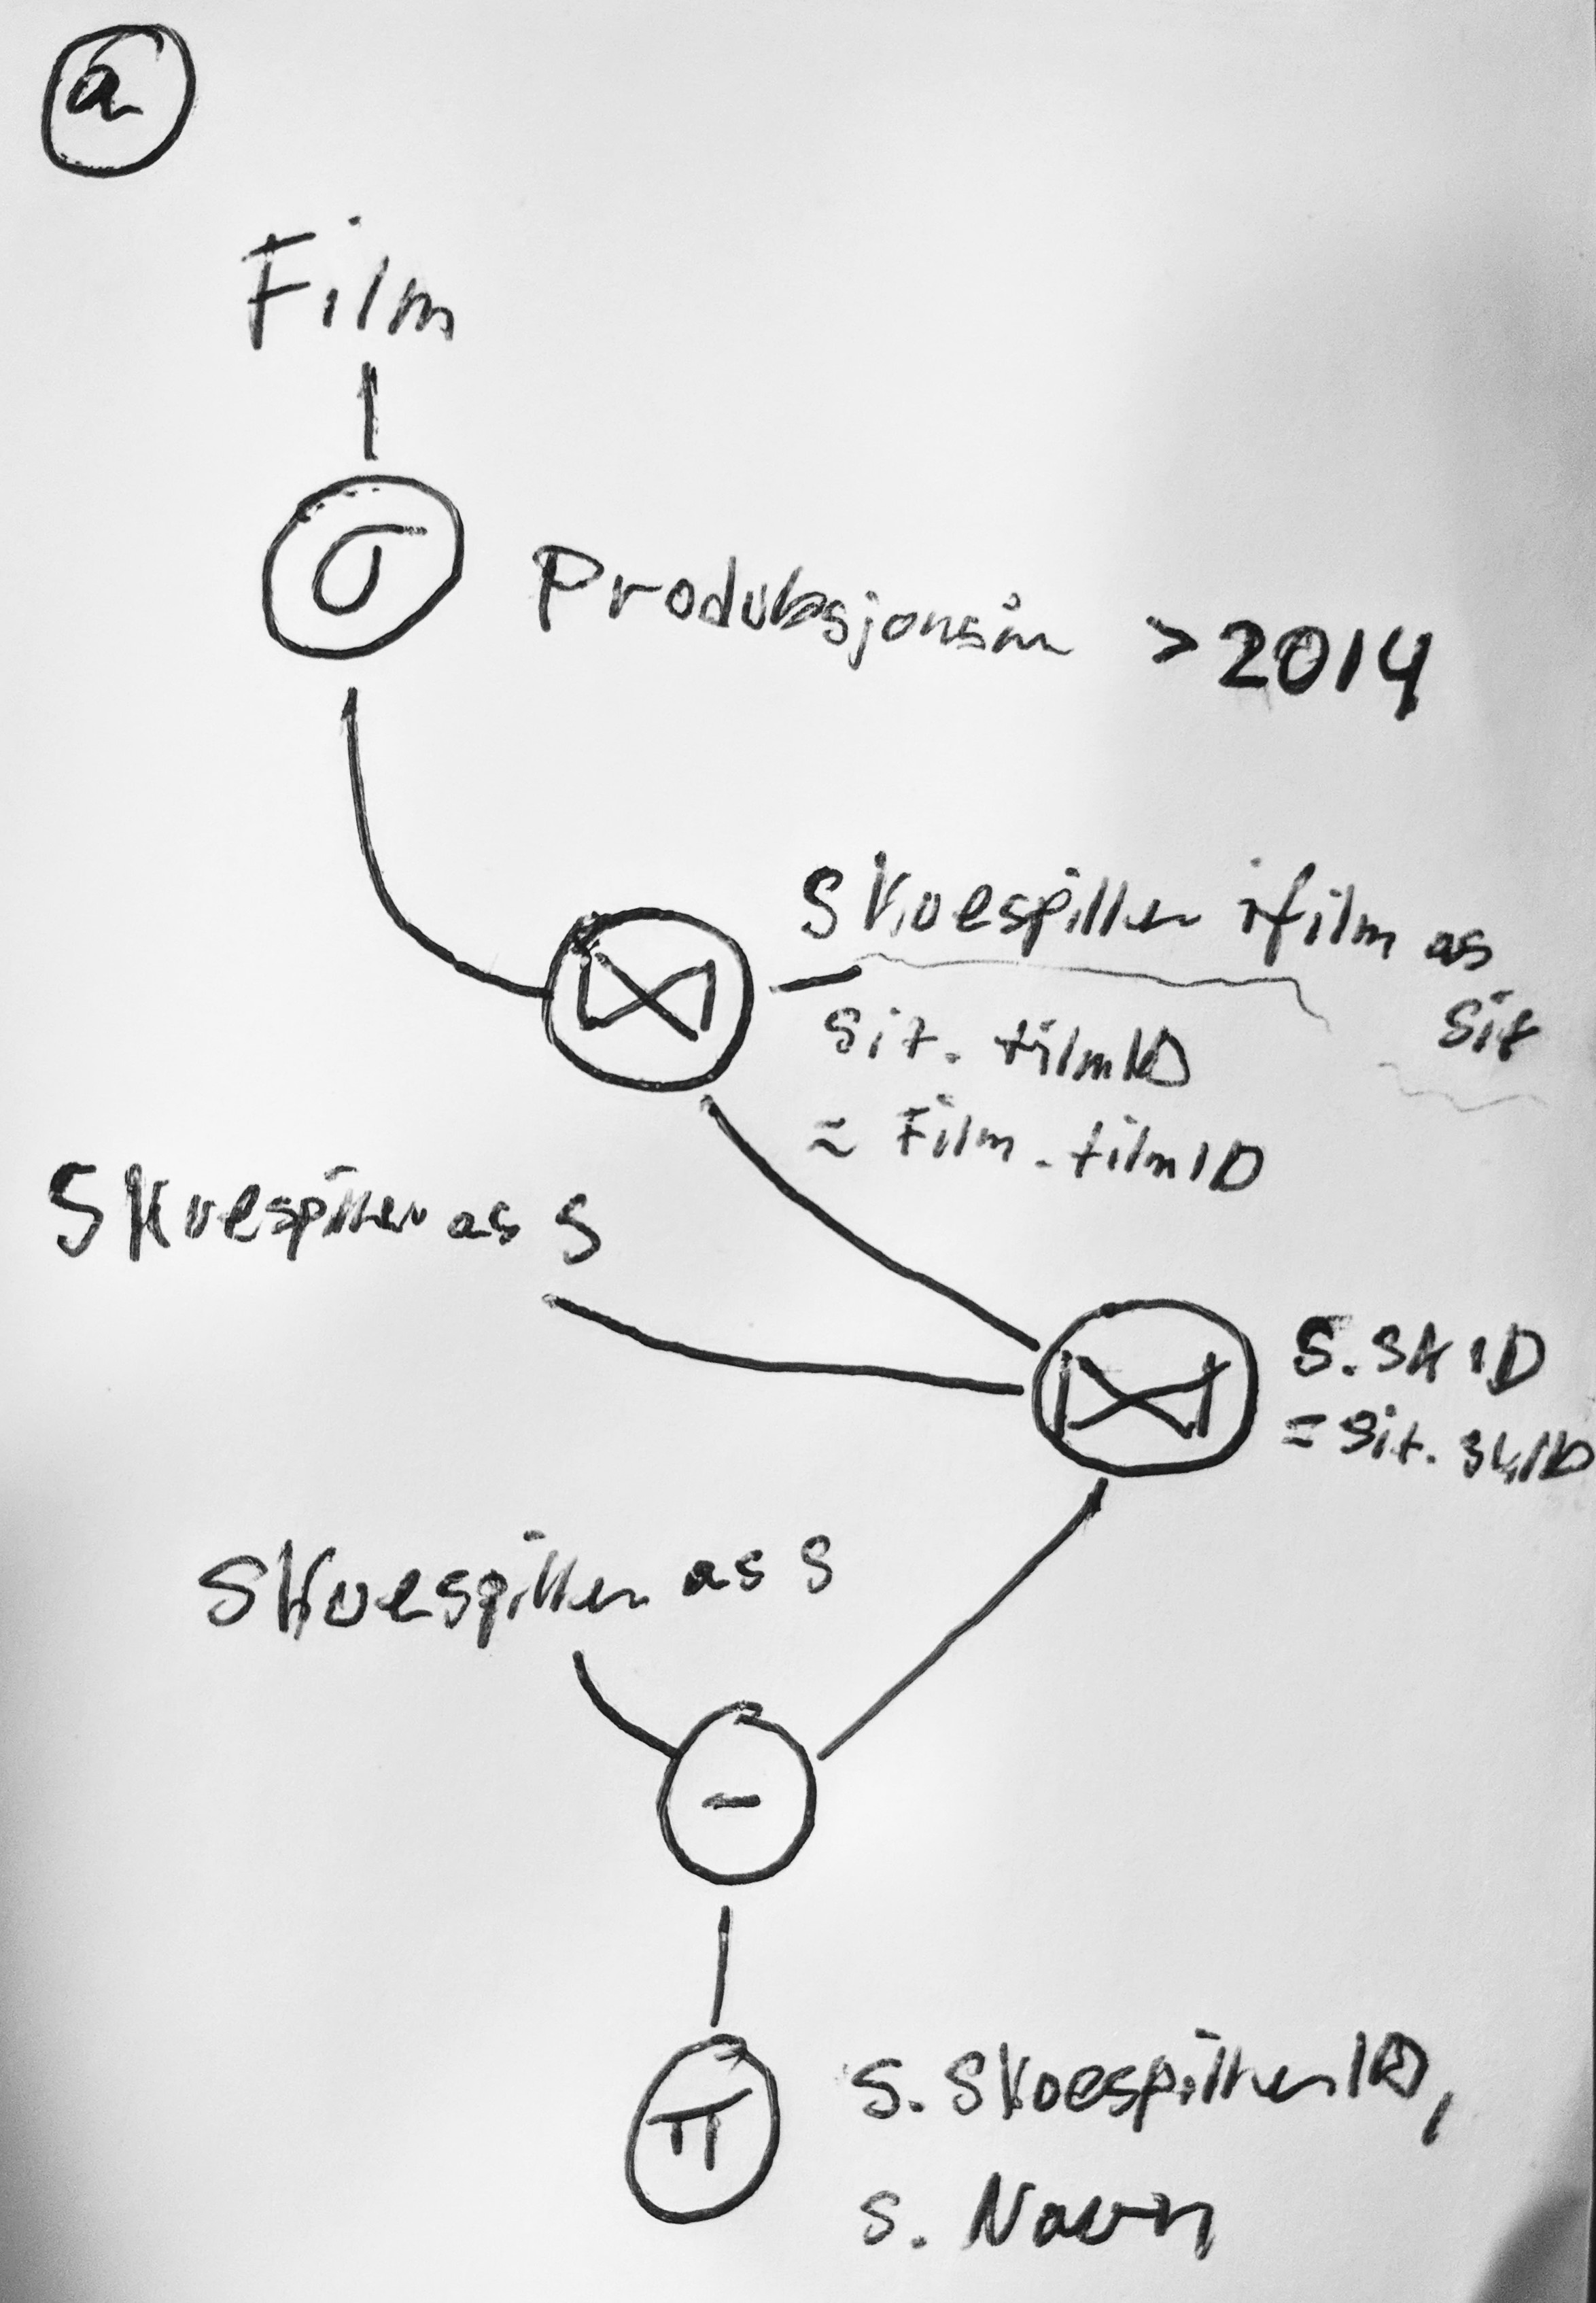 a
Film
σ Produksjonsår > 2014
Skuespiller ifilm as
sif
⋈ sif. filmID
= Film. filmID
Skuespiller as S
⋈ S. SKID
= sif. SKID
Skuespiller as S
-
π S. SkuespillerID,
S. Navn